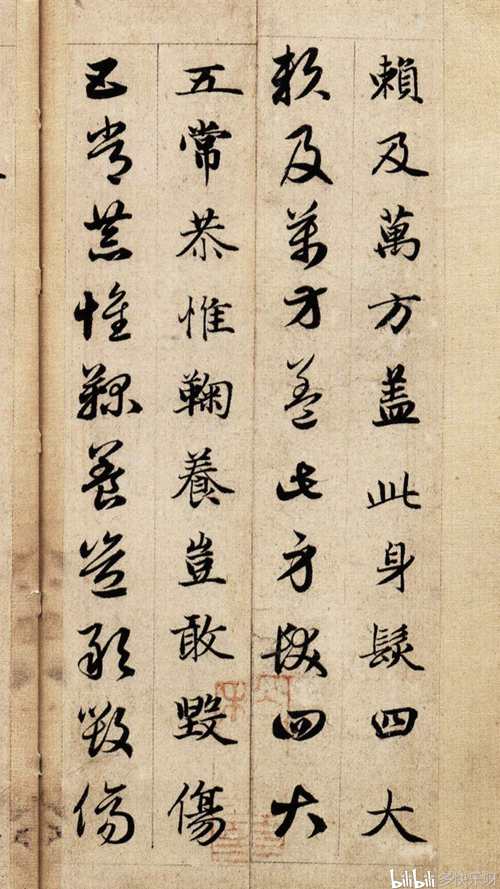 賴及萬方盖此身髮四大
賴及萬方蓋此身髮四大
五常恭惟鞠養豈敢毀傷
五常恭惟鞠養豈敢毀傷
bilibili